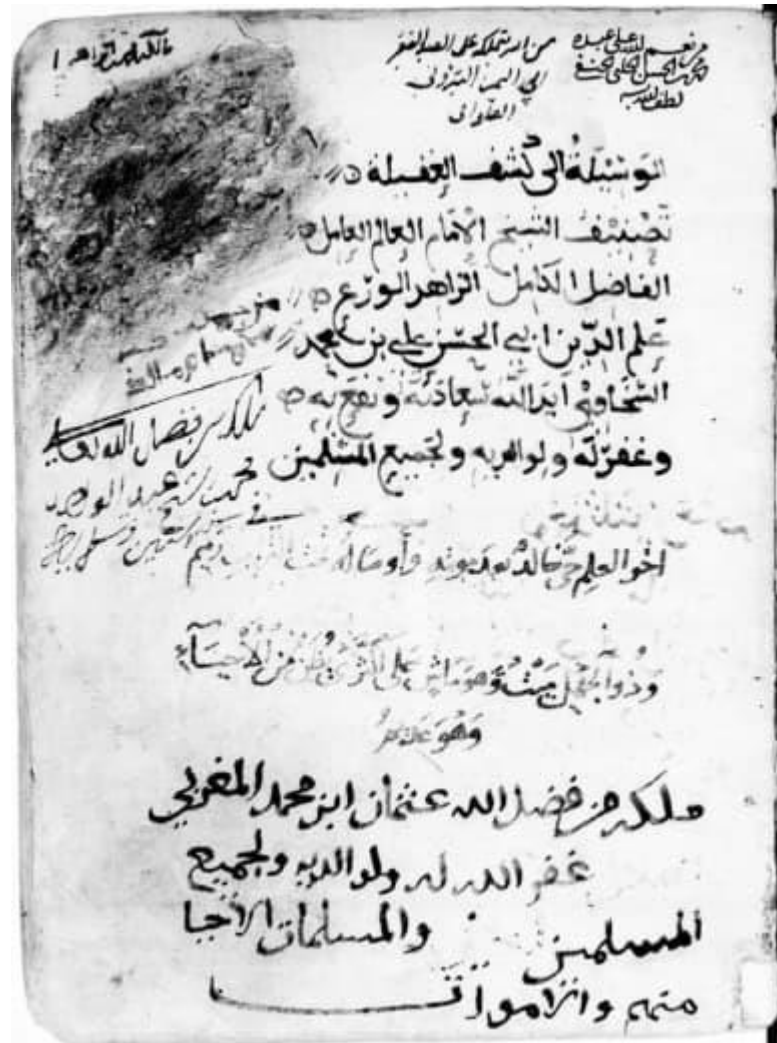 من نعم الله على عبده
محمد بن الحسن
لطف الله به
من استملكه على العبد الفقير
ابي اليمن البتروني
الوسيلة الى كشف العقيلة
تصنيف الشيخ الامام العالم العامل
الفاضل الكامل الزاهد الورع
علم الدين ابي الحسن علي بن محمد
السخاوي ايد الله سعادته ونفع به
وغفر له ولوالديه ولجميع المسلمين
ملكه من فضل الله تعالى
محمد بن الشيخ عبد الواحد
في سنة
اخو العلم حي خالد بعد موته وأوصاله تحت التراب رميم
وذو الجهل ميت وهو ماش على الثرى يظن من الأحياء
وهو عديم
ملكه من فضل الله عثمان ابن محمد المغربي
غفر الله له ولوالديه ولجميع
المسلمين والمسلمات الاحيا
منهم والاموات